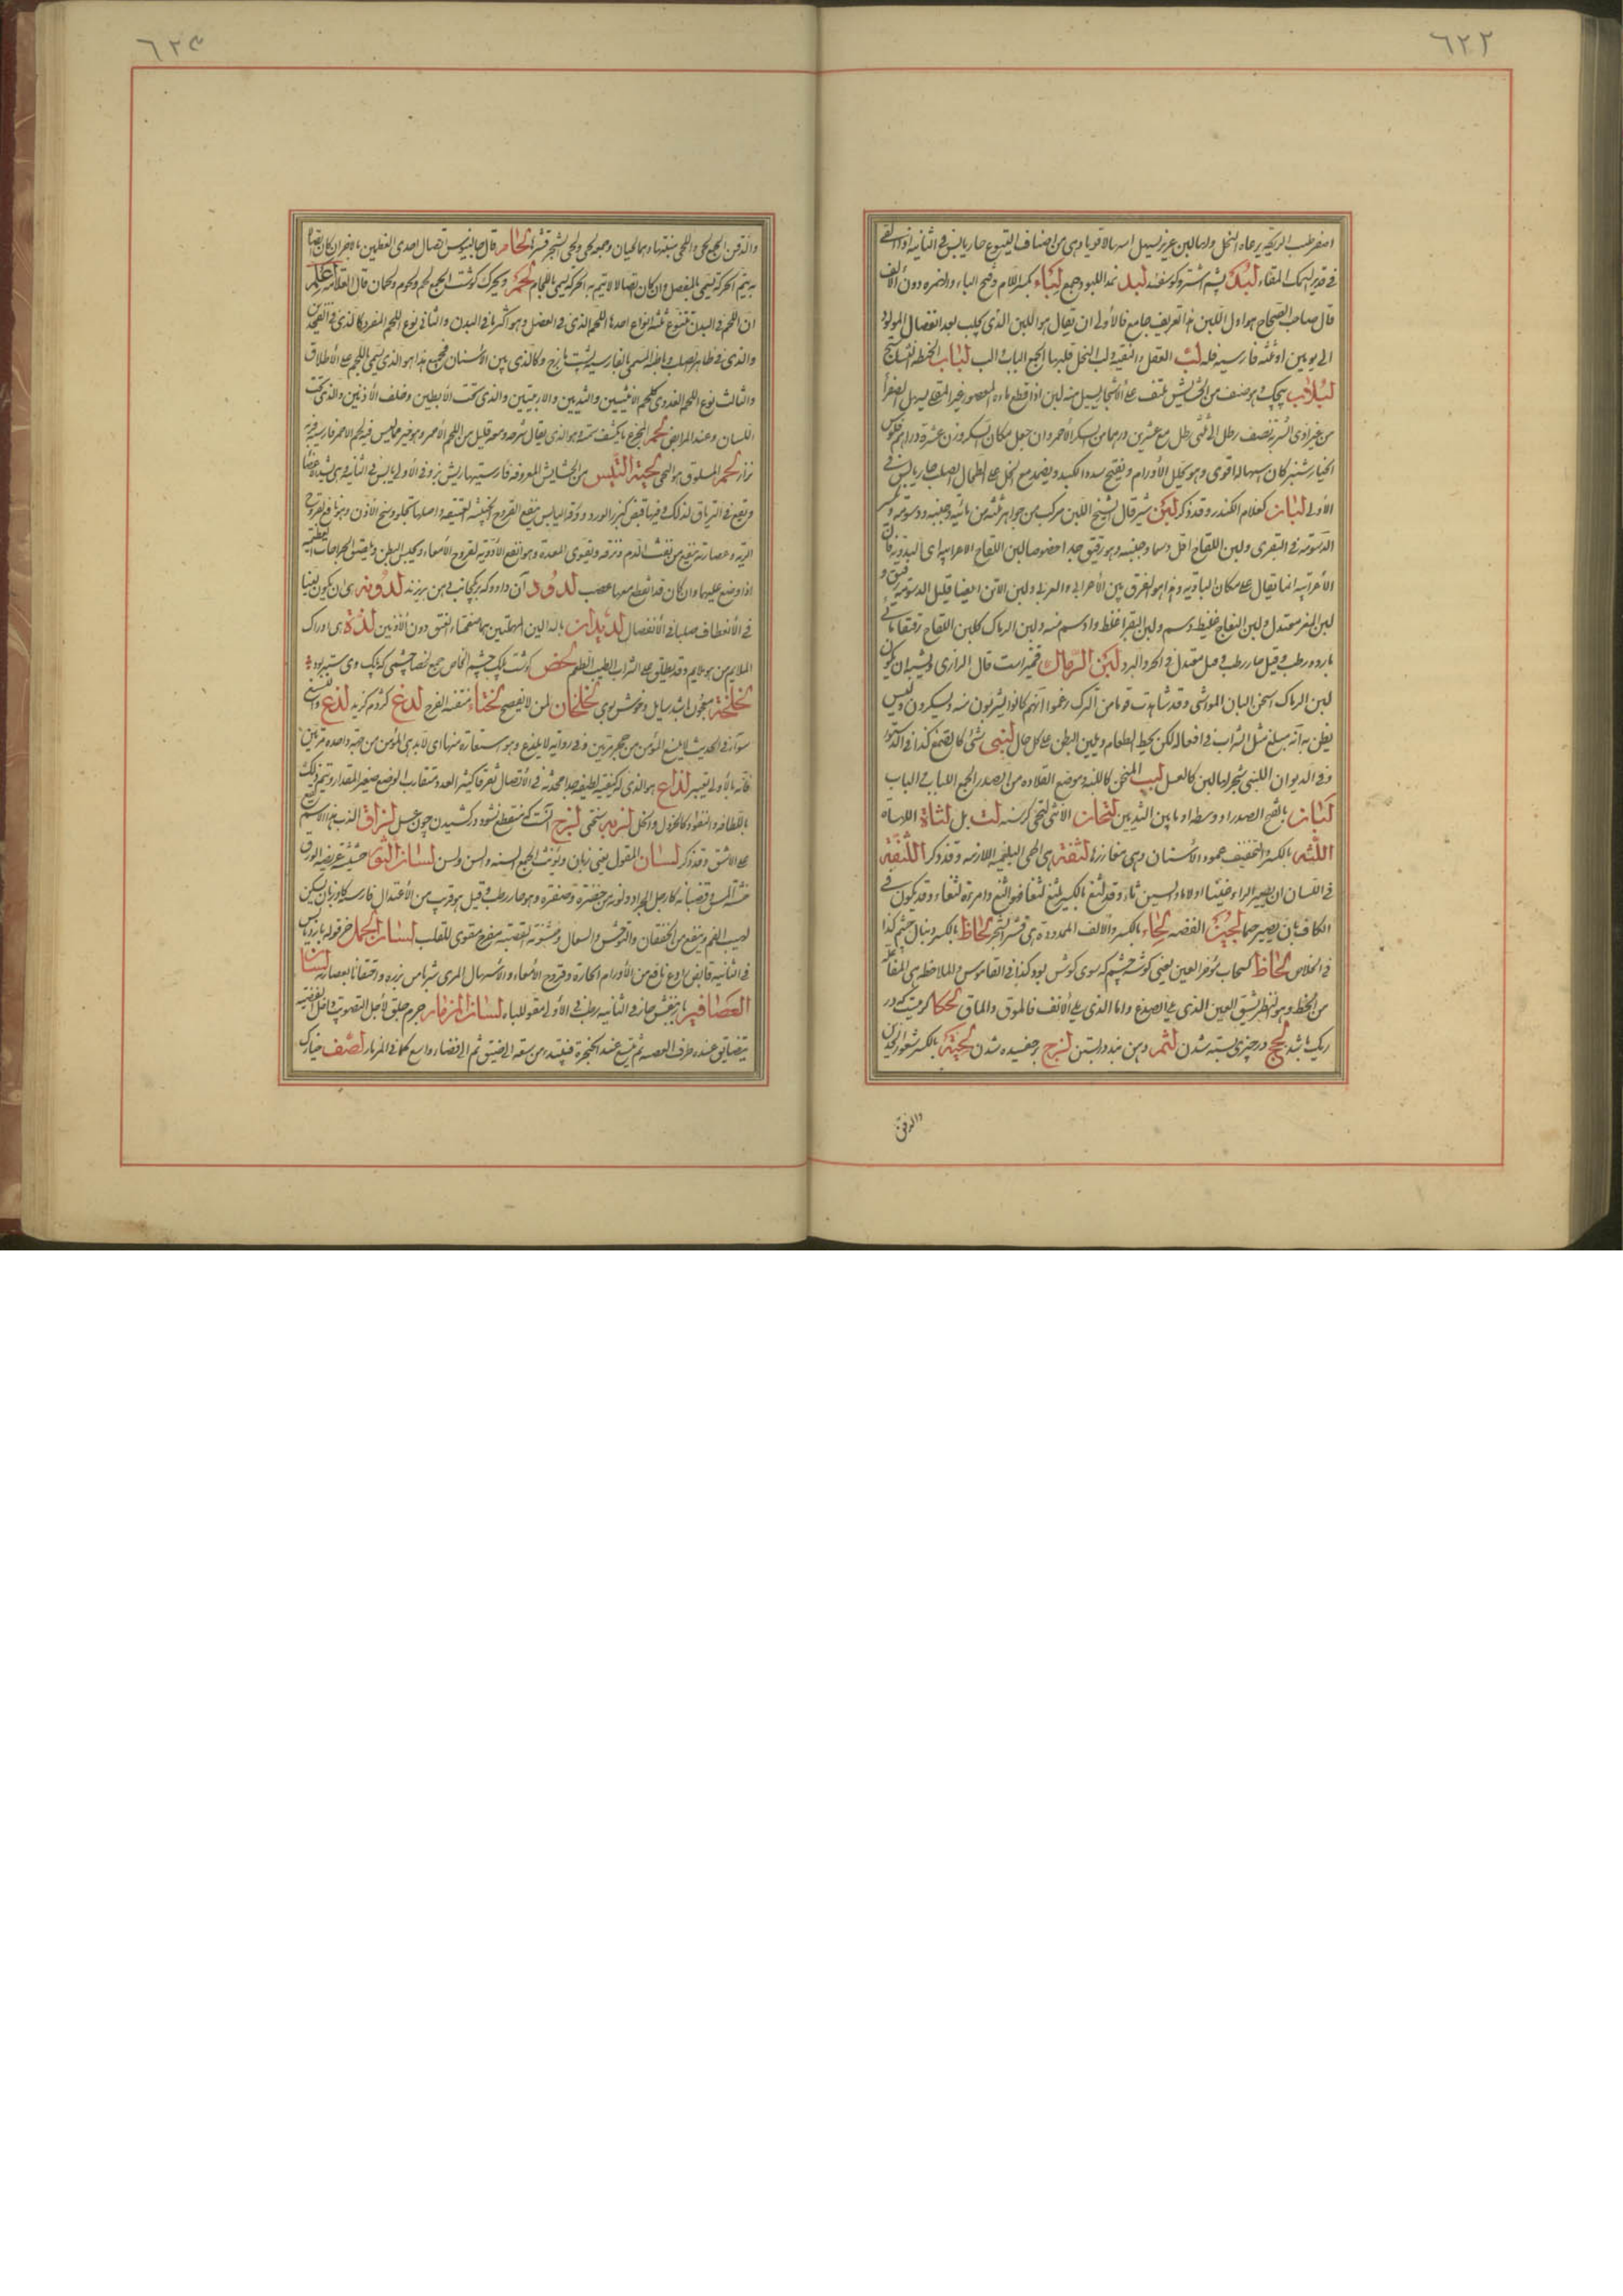 ٦٢٢
اصفر طيب الريح يرعاه النحل ولها لبن غزير يسهل اسهالا قويا وهى من اصناف اليتوع حار يابس فى الثانية اذا القى
فى غدير السمك اطفاه لبد پشم اشتر وگوسفند لبد نمد اللبود جمع لباء بكسر اللام وفتح الباء والهمزه دون الالف
قال صاحب الصحاح هو اول اللبن هذا تعريف جامع فالاولى ان يقال هو اللبن الذى يحلب بعد انفصال المولود
الى يومين او ثلثه فارسيه فله لب العقل والنقيه ولب النخل قلبها الجمع الباب والب لباب الحنطه
لبلاب پيچك وهو صنف من الحشايش يلتف على الاشجار يسيل منه لبن اذا قطع ماءه المعصور غير المغلى يسهل الصفرا
من غير اذى الشربة نصف رطل الى ثلثى رطل مع عشرين درهما من السكر الاحمر وان جعل مكان السكر وزن عشرة دراهم فلوس
الخيار شنبر كان اسهاله اقوى وهو يحلل الاورام ويفتح سدد الكبد ويضمد مع الخل على الطحال الصلب حار يابس فى
الاولى لبان كغلام الكندر وقد ذكر لبن شير قال الشيخ اللبن مركب من جواهر ثلثه من مائية وجبنيه ودسومة
الدسومة فى البقرى ولبن اللقاح اقل دسما وجبنيه وهو رقيق جدا خصوصا لبن اللقاح الاعرابيه اى البدويه فان
الاعرابيه انما يقال على سكان الباديه وهذا هو الفرق بين الاعرابى والعربى ولبن الاتن ايضا قليل الدسومة رقيق و
لبن المعز معتدل ولبن النعاج غليظ دسم ولبن البقر اغلظ وادسم منه ولبن الرماك كلبن اللقاح رقيقا مائى
بارد ورطب وقيل حار رطب وقيل معتدل فى الحر والبرد لبن الرماك قميز است قال الرازى ويشبه ان يكون
لبن الرماك اسخن البان المواشى وقد شاهدت قوما من الترك زعموا انهم كانوا يشربون منه ويسكرون وليس
يظن به انه يبلغ مثل الشراب فى افعاله لكن يحيط الطعام ويلين البطن على كل حال لبنى شئ كالصمغ كذا فى الدستور
وفى الديوان اللبنى شجر لها لبن كالعسل لبب المنحر كاللبه وموضع القلاده من الصدر الجمع الالباب فى الباب
لبان بالفتح الصدر او وسطه او ما بين الثديين لتحان الانثى لتحى گرسنه لت بل لثاة اللهاة
اللثه بالكسر والتخفيف عمود الاسنان وهى مغارزها لثقه هى الحمى البلغميه اللازمه وقد ذكر اللثغه
فى اللسان ان يصير الراء غينا او لاما والسين ثاء وقد لثغ بالكسر يلثغ لثغا فهو الثغ وامرأة لثغاء وقد يكون فى
الكاف بان يصير حما لجين الفضه لحاء بالكسر والالف الممدودة هى قشر الشجر لحاظ بالكسر دنبال چشم كذا
فى الخلاص لحاظ كسحاب مؤخر العين يعنى گوشه چشم كه سوى گوش بود كذا فى القاموس والملاحظه هى المفاعلة
من اللحظ وهو النظر بشق العين الذى يلى الصدغ واما الذى يلى الانف فالموق والماق لحكا كرميست كه در
ريگ باشد لحج در چيزى بسته شدن لثم دهن بند در بستن لزج بر چفسيده شدن لحيه بالكسر شعور الخدين
والذقن
٦٢٣
والذقن الجمع لحى واللحى منبتهما وهما لحيان وجمع لحى ولحى الشجر قشرها لحام قال جالينوس اتصال احدى العظمين بالاخر ان كان اتصالا
به يتم الحركة يسمى بالمفصل وان كان اتصالا لا يتم به الحركة يسمى باللحام لحم ويحرك گوشت الجمع لحم ولحوم ولحان قال العلامة اعلم
ان اللحم فى البدن يتنوع ثلثة انواع احدها اللحم الذى فى العضل وهو اكثر ما فى البدن والثانى نوع اللحم المفرد كالذى فى الفخذين
والذى فى ظاهر الصلب وباطنه المسمى بالفارسيه پشت مازج وكالذى بين الاسنان فجميع هذا هو الذى يسمى اللحم على الاطلاق
والثالث نوع اللحم الغددى كلحم الانثيين والثديين والاربيتين والذى تحت الابطين وخلف الاذنين والذى تحت
اللسان وعند المرابض لحم
نزار لحم المسلوق هو النى لحية التيس من الحشايش المعروفه فارسيتها ريش بز وفى الاولى يابس فى الثانيه
ويقع فى الترياق لذلك وفيها قبض كبزر الورد وورقه اليابس ينفع القروح الخبيثه العتيقه
الرئه وعصارته ينفع من نفث الدم ونزفه ويقوى المعدة وهو انفع الادويه لقروح الامعاء ويحبس البطن ويلصق الجراحات العظيمه
اذا وضع عليها وان كان قد انقطع معها عصب لدود آن دارو كه بر يكجانب دهن ريزند لدونه هى ان يكون لينا
فى الانعطاف صلبا فى الانفصال لديدان بالدالين المهملتين هما صفحتا العنق دون الاذنين لذة هى ادراك
الملايم من هو ملايم وقد يطلق على الشراب الطيب الطعم لخص گوشت پلك چشم
لخلخه معجون باشد سايل وخوش بوى لخلخان لمن لا يفصح لخناء منتنة الفرج لدغ كژدم گزيد لذع
سوزانيدن فى الحديث لا يلسع المؤمن من حجر مرتين وفى رواية لا يلدغ وهو استعاره منها اى لا يدهى المؤمن من جهة واحدة مرتين
فانه بالاولى يعتبر لذاع هو الذى له كيفية لطيفه جدا يحدث فى الاتصال تفرقا كثير العدد متقارب الوضع صغير المقدار
باللطافه والنفوذ كالخردل والخل لزبه سختى لزج آنست كه منقطع نشود در كشيدن چون عسل لزاق الذهب
على الاشق وقد ذكر لسان المقول يعنى زبان ويؤنث الجمع السنه والسن ولسن لسان الثور حشيشة عريضة الورق
خشنة الملمس وقضبانه كارجل الجراد ولونه بين خضرة وصفره وهو حار رطب وقيل هو قريب من الاعتدال فارسيه گاو زبان يسكن
لهيب الفم وينفع من الخفقان والتوحش والسعال وخشونة القصبه مفرح مقوى للقلب لسان الحمل خرقوله بارد يابس
فى الثانيه قابض رادع نافع من الاورام الحارة وقروح الامعاء والاسهال المرى شربا من بزره واحتقانا بعصارته لسان
العصافير حار فى الثانيه رطب فى الاولى مقو للباه لسان المزمار جرم خلق لاجل التصويت واصل القصبه
يتضايق عنده طرف القصبه ثم يتسع عند الحنجرة فيبتدى من سعه الى ضيق ثم الى فضاء واسع كما فى المزمار لصف